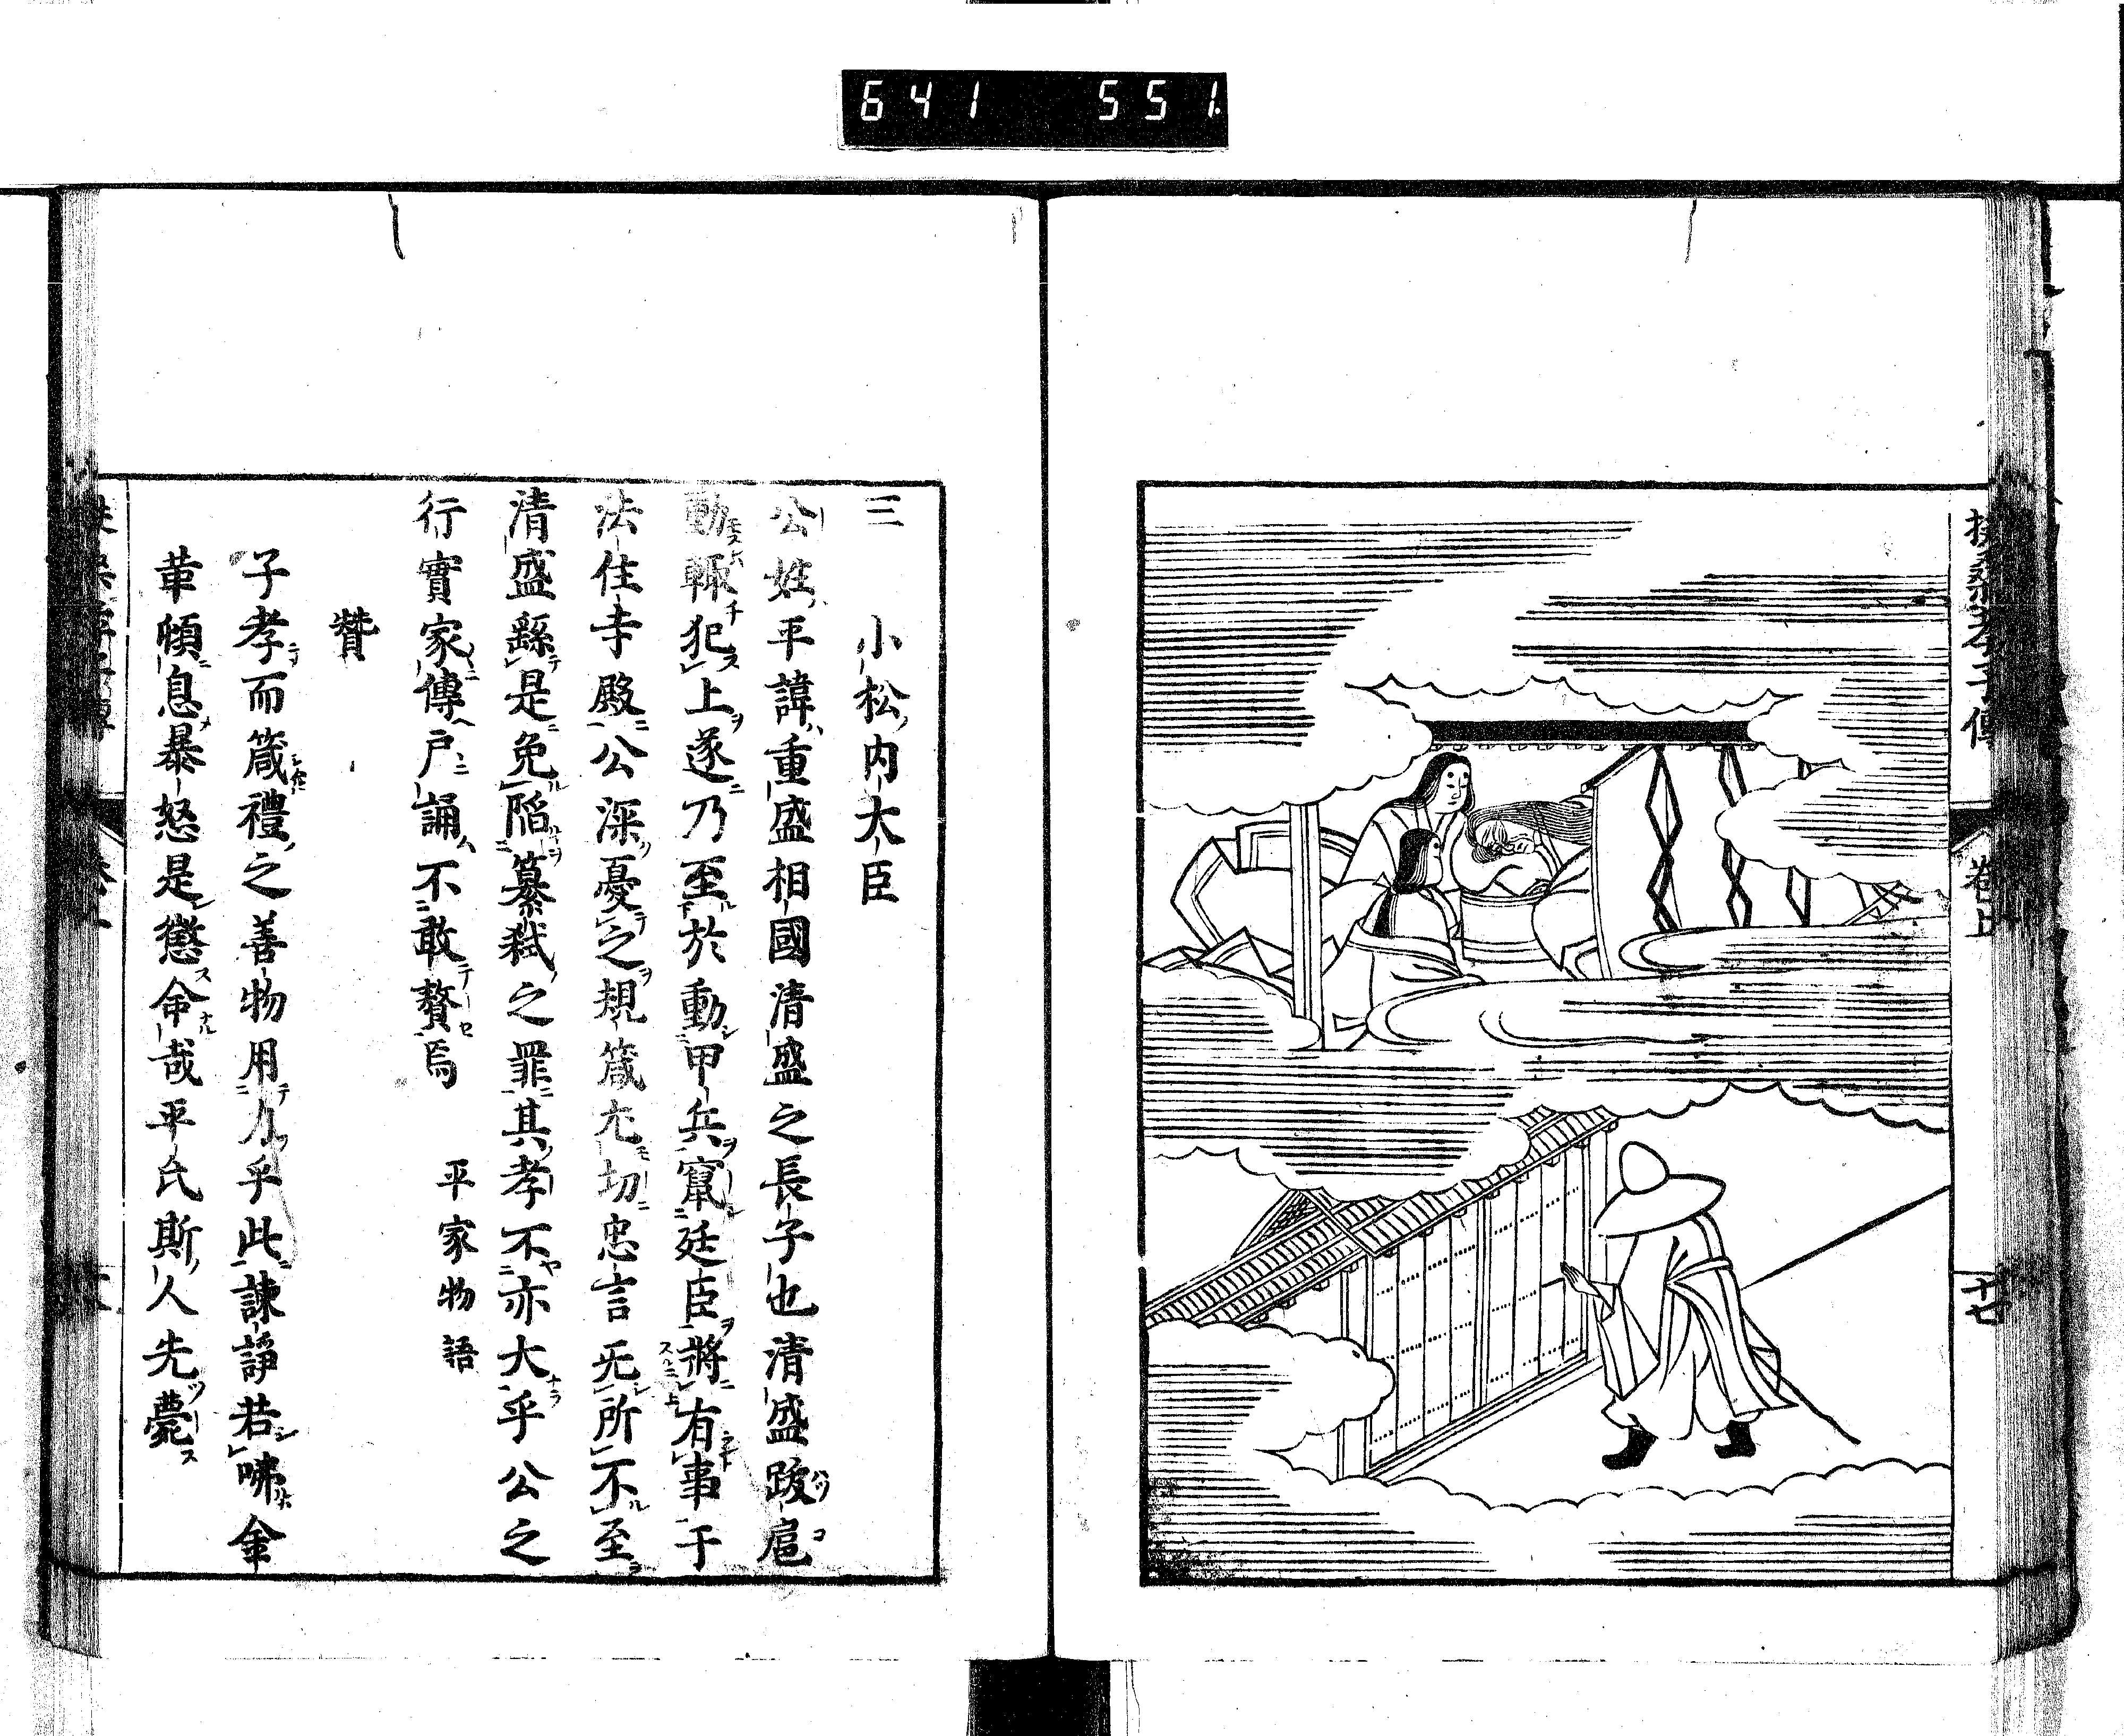 641 551.
扶桑孝子傳 卷上 十七
三 小松内大臣
公姓平諱重盛相國清盛之長子也清盛跋扈
動輒犯上遂乃至於動甲兵竄廷臣將有事于
法住寺殿公深憂之規箴尤切忠言无所不至
清盛繇是免陷纂弑之罪其孝不亦大乎公之
行實家傳戸誦不敢贅焉 平家物語
贊
子孝而箴禮之善物用力乎此諫諍若咈金
革傾息暴怒是懲命哉平氏斯人先薨